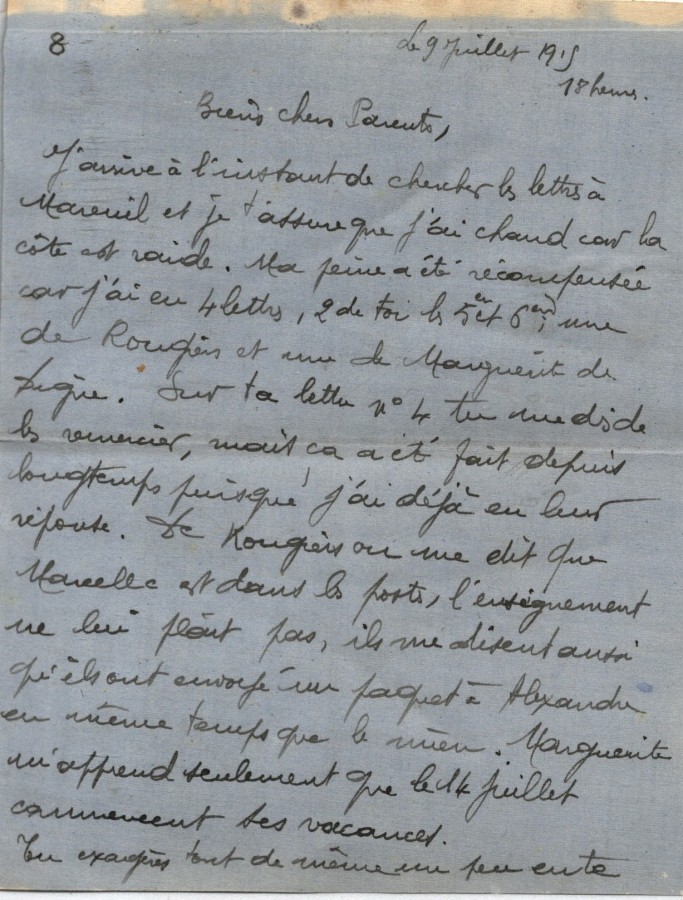 8
Le 9 Juillet 1915
18 heures.
Biens chers Parents,
J'arrive à l'instant de chercher les lettres à
Mareuil et je t'assure que j'ai chaud car la
côte est raide. Ma peine a été récompensée
car j'ai eu 4 lettres, 2 de toi les 5 et 6, une
de Rougiers et une de Marguerite de
Digne. Sur ta lettre n° 4 tu me dis de
les remercier, mais ça a été fait depuis
longtemps puisque j'ai déjà eu leur
réponse. De Rougiers on me dit que
Marcelle est dans les postes, l'enseignement
ne lui plait pas, ils me disent aussi
qu'ils ont envoyé un paquet à Alexandre
en même temps que le mien. Marguerite
m'apprend seulement que le 14 juillet
commencent ses vacances.
Tu exagères tout de même un peu en te